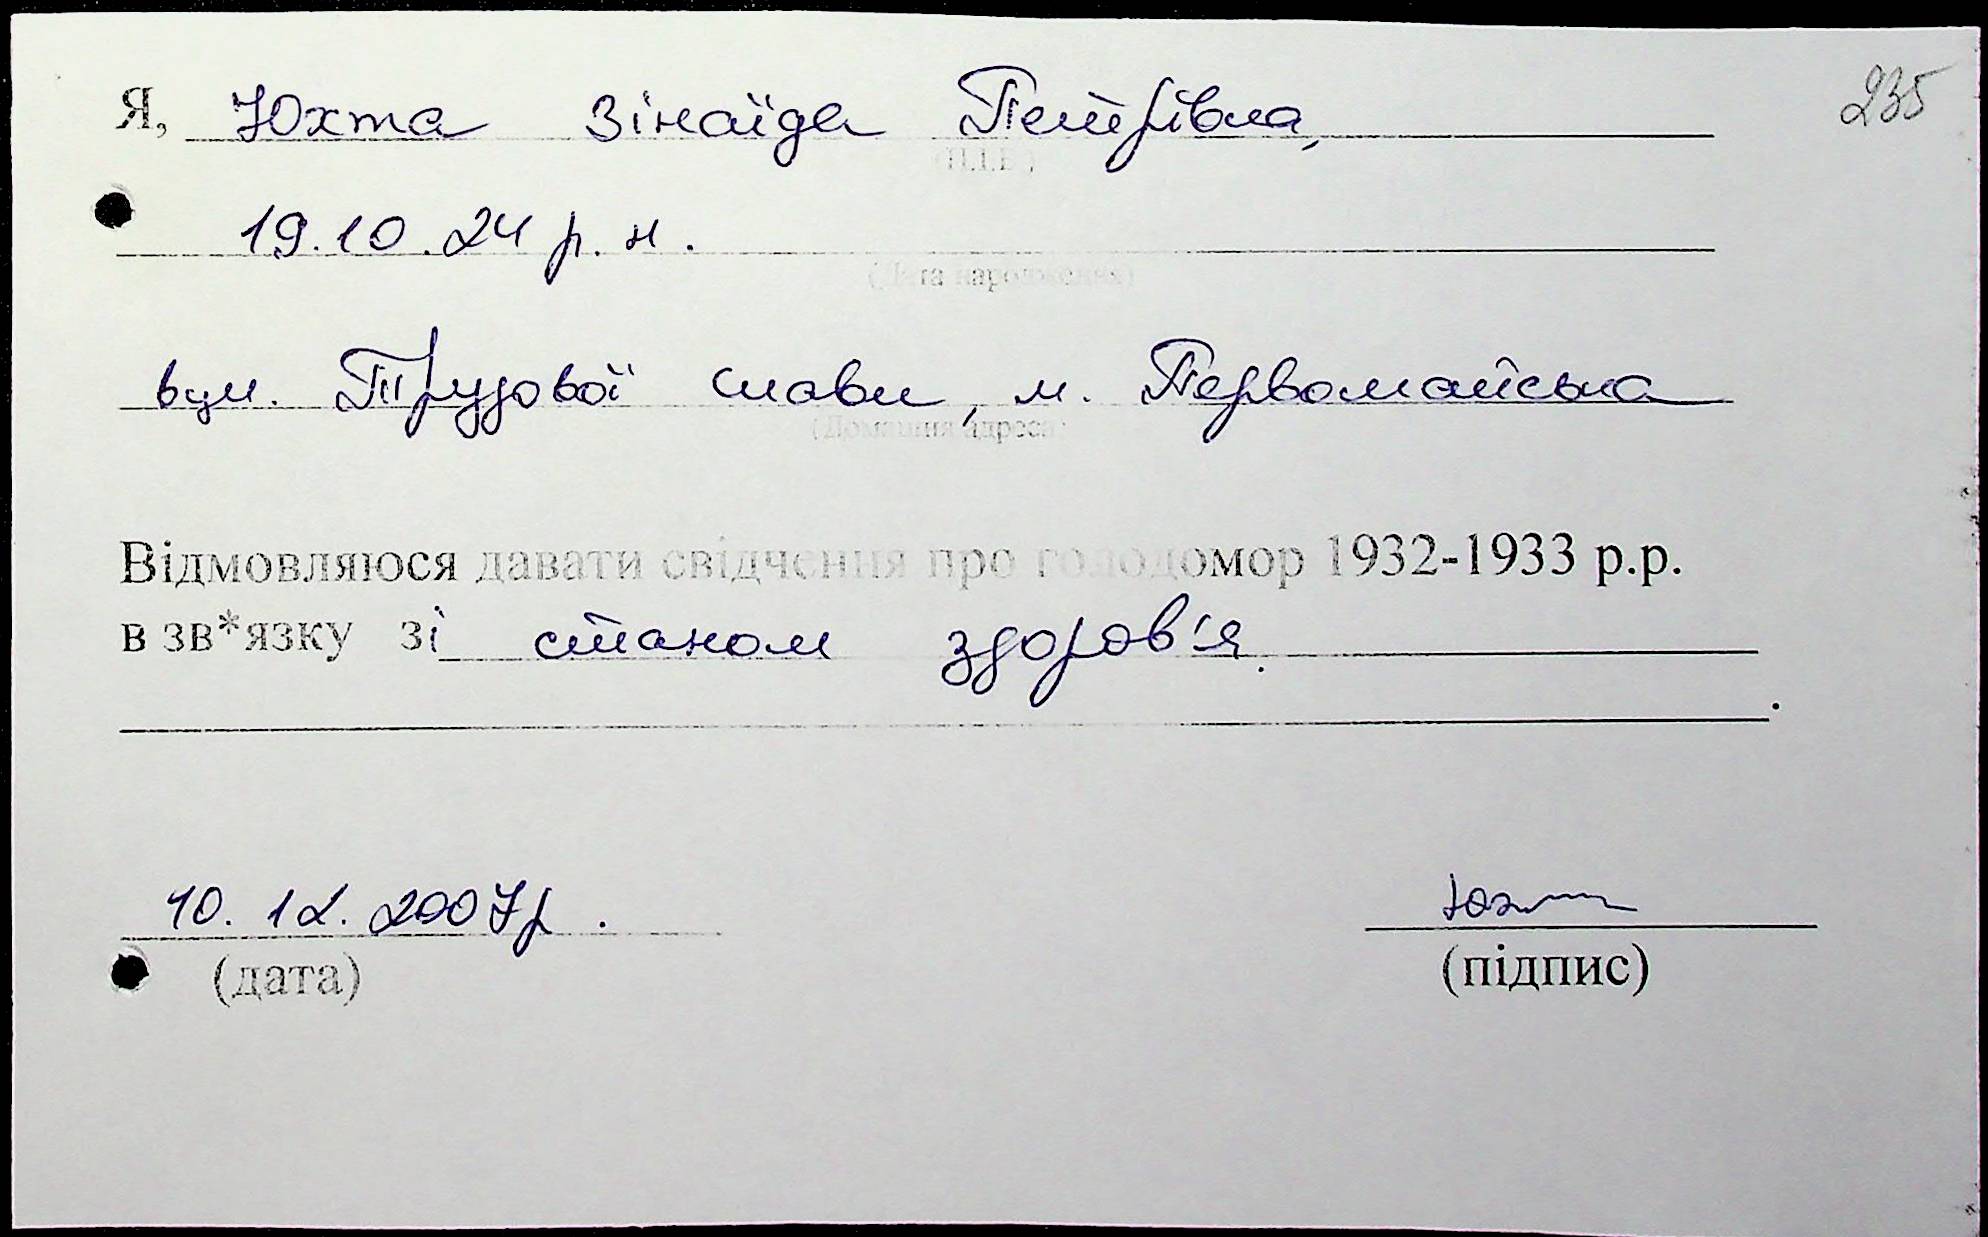 235
Я, Юхта Зінаїда Петрівна,
(П.І.Б.)
19.10.24 р.н.
(Дата народження)
вул. Трудової слави, м. Первомайська
(Домашня адреса)
Відмовляюся давати свідчення про голодомор 1932-1933 р.р.
в зв*язку зі станом здоров'я.
.
10.12.2007р.
Юхта
(дата) (підпис)